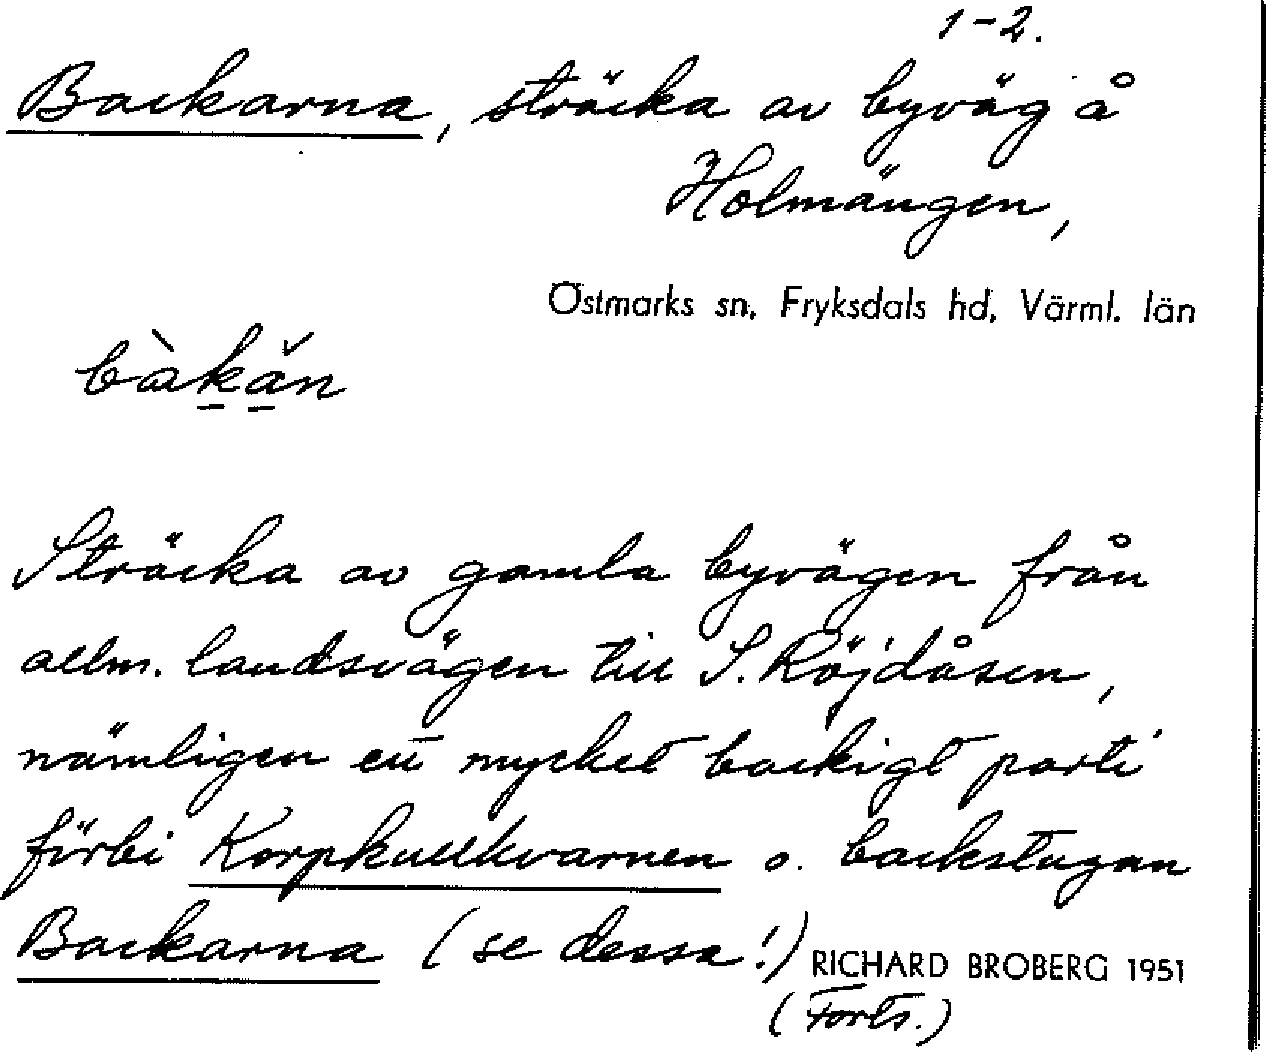 1-2.
Backarna, sträcka av byväg å
Holmängen,
Östmarks sn, Fryksdals hd, Värml. län
bàkăn
Sträcka av gamla byvägen från
allm. landsvägen till S. Röjdåsen,
nämligen ett mycket backigt parti
förbi Korpkullkvarnen o. backstugan
Backarna (se dessa!) RICHARD BROBERG 1951
(Forts.)